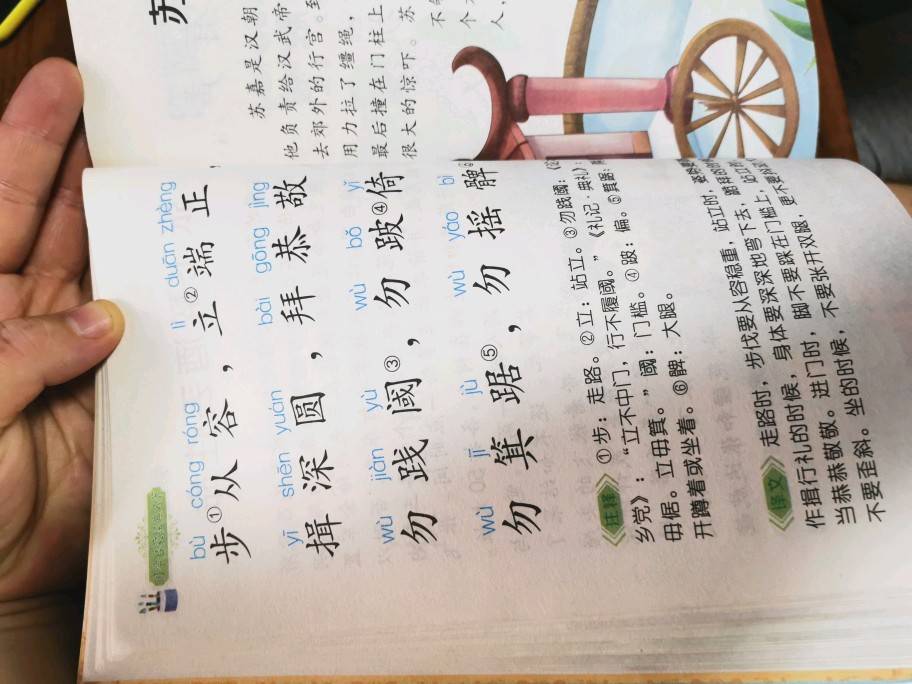 bù cóng róng lì duān zhèng
步①从容，立②端正，
yī shēn yuán bài gōng jìng
揖深圆，拜恭敬
wù jiàn yù wù bǒ yǐ
勿践阈③，勿跛④倚
wù jī jù wù yáo bì
勿箕踞⑤，勿摇髀
注释 ①步：走路。②立：站立。③勿践阈：《论
乡党》：“立不中门，行不履阈。”《礼记·典礼》：
毋踞。立毋箕。”阈：门槛。④跛：偏。⑤箕踞：
开蹲着或坐着。⑥髀：大腿。
译文 走路时，步伐要从容稳重，站立时，姿势要
作揖行礼的时候，身体要深深地弯下去，跪拜的时
当恭恭敬敬。进门时，脚不要踩在门槛上，站立时
不要歪斜。坐的时候，不要张开双腿，更不要抖
苏
苏嘉是汉朝
他负责给汉武帝
去郊外的行宫。至
用力拉了缰绳，
最后撞在门柱上
很大的惊吓。苏
不
个
人，